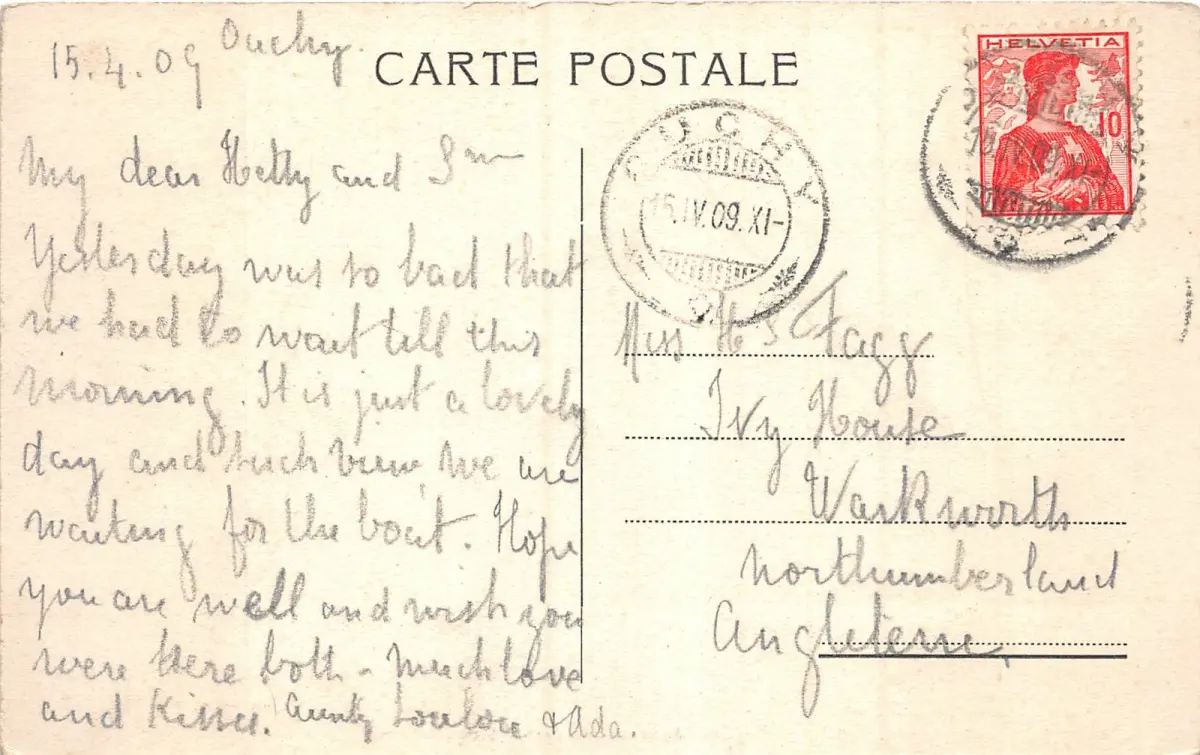 15.4.09 Ouchy.
CARTE POSTALE
HELVETIA
10
OUCHY
15.IV.09.XI-
My dear Hetty and
Yesterday was so bad that
we had to wait till this
morning. It is just a lovely
day and such view, we are
waiting for the boat. Hope
you are well and wish you
were here both - Much love
and Kisses. Aunty Loulou & Ada.
Miss H S Fagg
Ivy House
Warkworth
Northumberland
Angleterre.